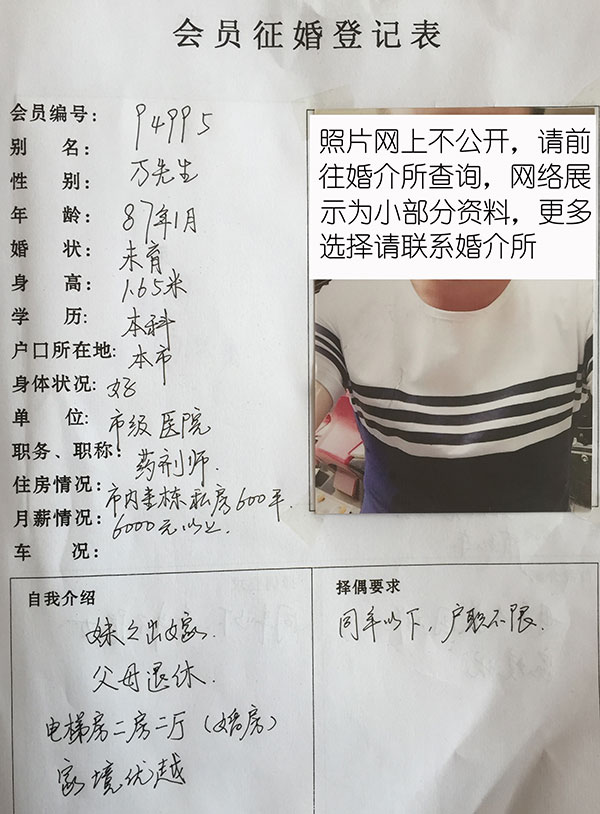 会员征婚登记表
会员编号: 94995
别 名: 万先生
性 别:
年 龄: 87年1月
婚 状: 未育
身 高: 1.65米
学 历: 本科
户口所在地: 本市
身体状况: 好
单 位: 市级医院
职务、职称: 药剂师.
住房情况: 市内整栋私房600平.
月薪情况: 6000元以上.
车 况:
照片网上不公开，请前
往婚介所查询，网络展
示为小部分资料，更多
选择请联系婚介所
自我介绍
妹已出嫁.
父母退休.
电梯房二房二厅（婚房）
家境优越
择偶要求
同年以下，户职不限.